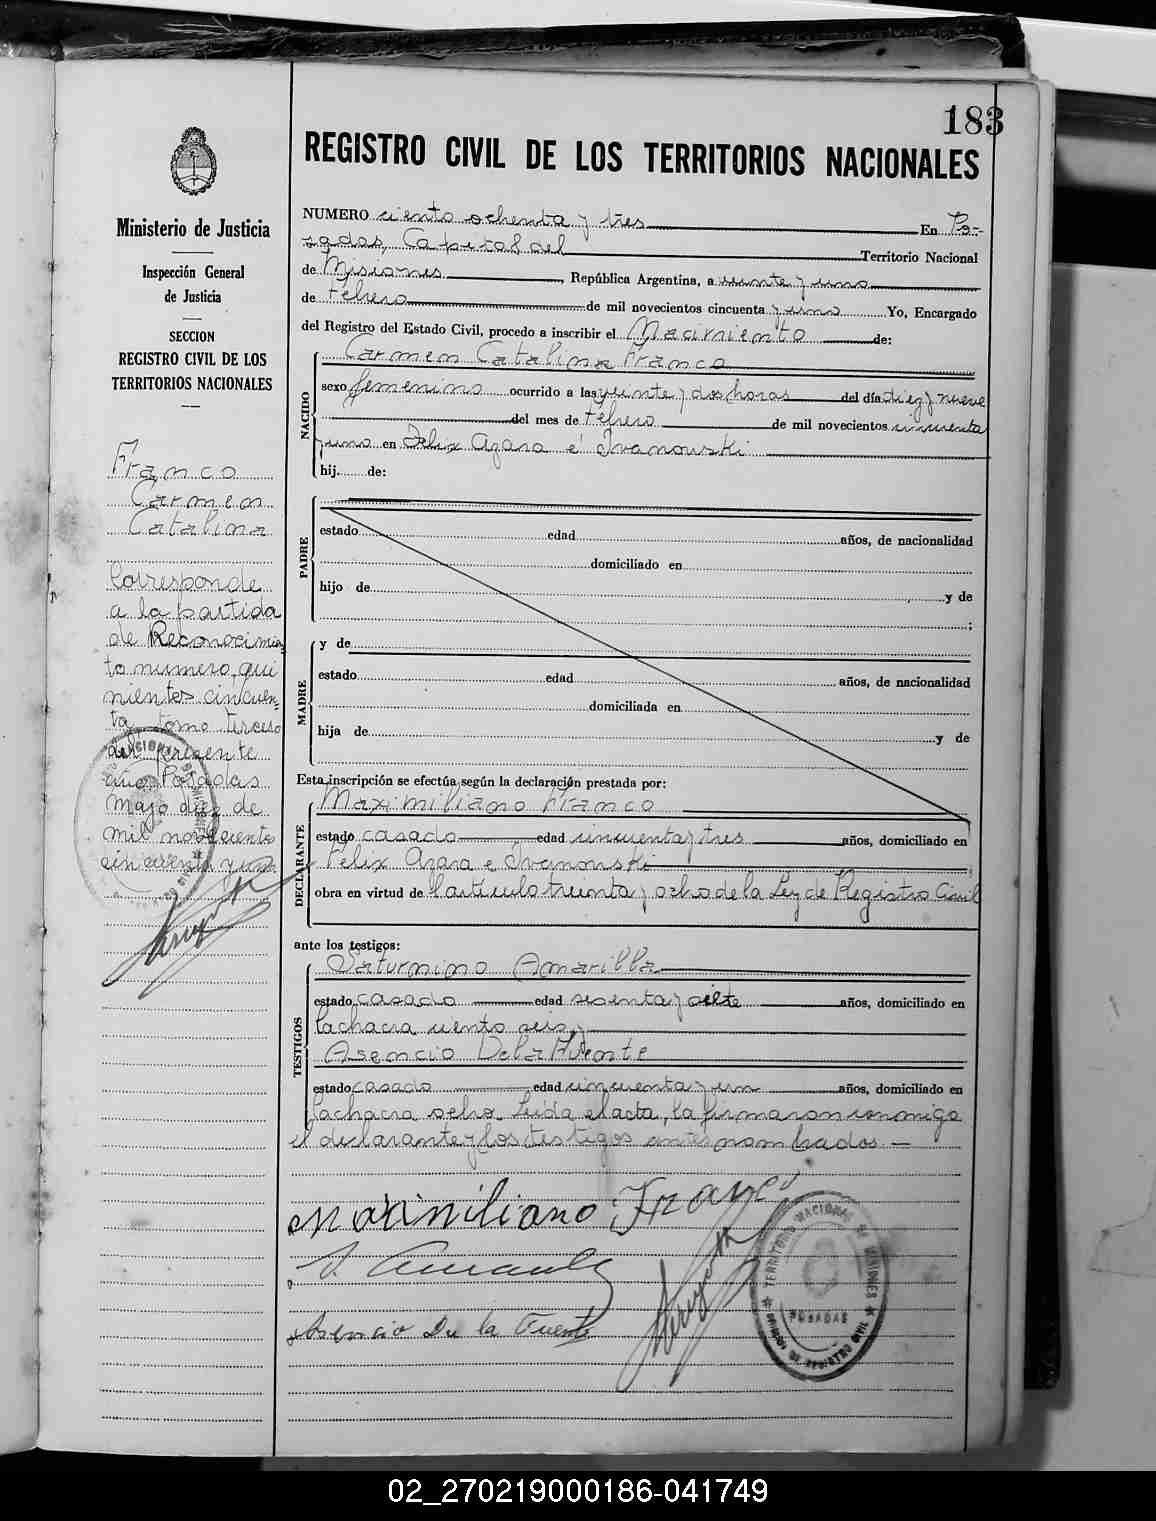 183
REGISTRO CIVIL DE LOS TERRITORIOS NACIONALES
Ministerio de Justicia
Inspección General
de Justicia
SECCION
REGISTRO CIVIL DE LOS
TERRITORIOS NACIONALES
Franco
Carmen
Catalina
Corresponde
a la partida
de Reconocimien
to numero, qui
nientos cincuen-
ta tomo tercero
del presente
año Posadas
Mayo diez de
mil novecientos
cincuenta y uno
NUMERO ciento ochenta y tres En Po-
sadas, Capital del Territorio Nacional
de Misiones, República Argentina, a veinte y uno
de Febrero de mil novecientos cincuenta y uno Yo, Encargado
del Registro del Estado Civil, procedo a inscribir el Nacimiento de:
NACIDO
Carmen Catalina Franco
sexo femenino ocurrido a las veinte y dos horas del día diez y nueve
del mes de Febrero de mil novecientos cincuenta
y uno en Felix Azara é Ivanowski
hij de:
PADRE
estado edad años, de nacionalidad
domiciliado en
hijo de y de
;
MADRE
y de
estado edad años, de nacionalidad
domiciliada en
hija de y de
Esta inscripción se efectúa según la declaración prestada por:
DECLARANTE
Maximiliano Franco
estado casado edad cincuenta y tres años, domiciliado en
Felix Azara e Ivanowski
obra en virtud de l articulo treinta y ocho de la Ley de Registro Civil
ante los testigos:
TESTIGOS
Saturnino Amarilla
estado casado edad sesenta y siete años, domiciliado en
la chacra ciento seis, y
Asencio De la Fuente
estado casado edad cincuenta y un años, domiciliado en
la chacra ocho. Leida el acta, la firmaron conmigo
el declarante y los testigos antes nombrados.—
Maximiliano Franco
S. Amarilla
Asencio De la Fuente
TERRITORIO NACIONAL DE MISIONES
POSADAS
OFICINA DE REGISTRO CIVIL
02_270219000186-041749